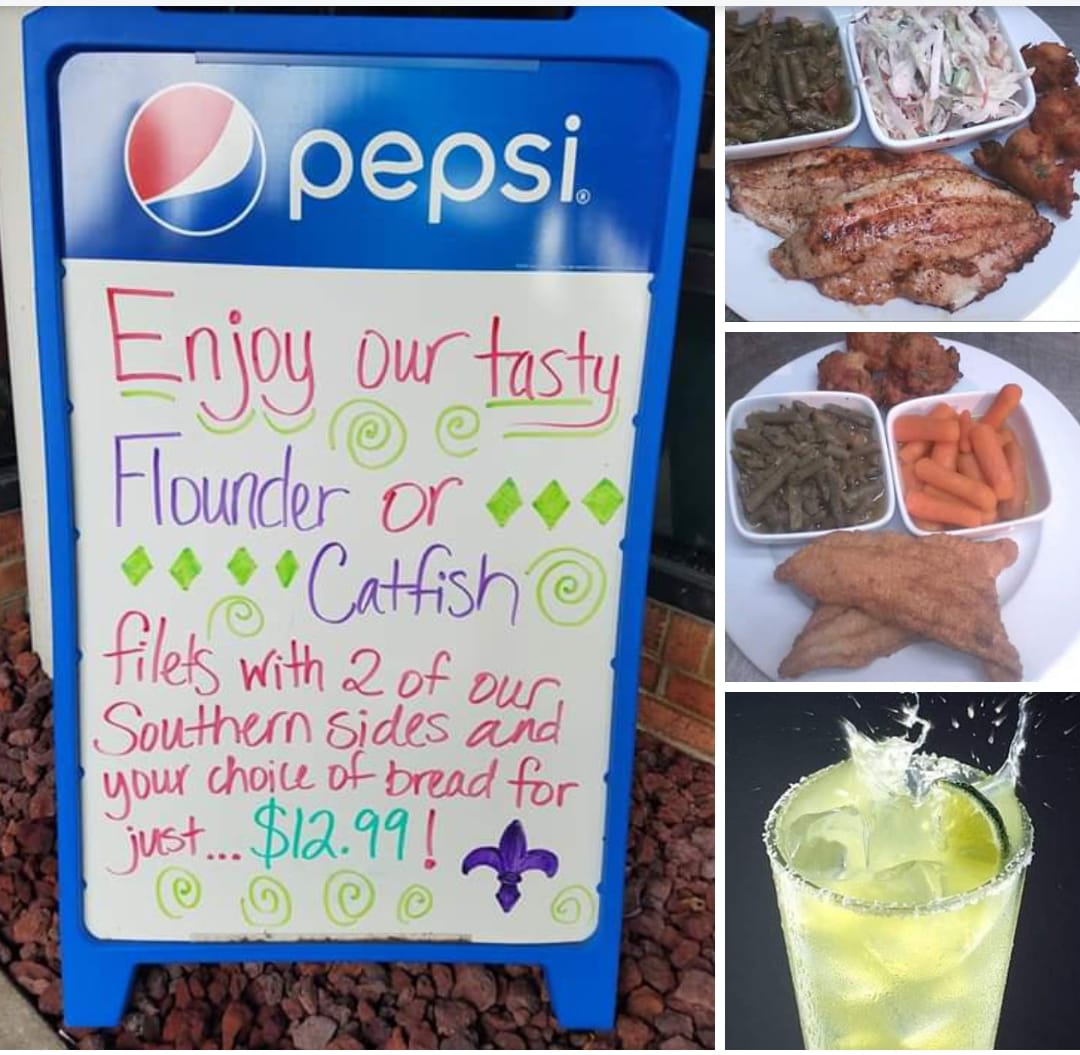 pepsi®
Enjoy our tasty
Flounder or
Catfish
filets with 2 of our
Southern sides and
your choice of bread for
just... $12.99!